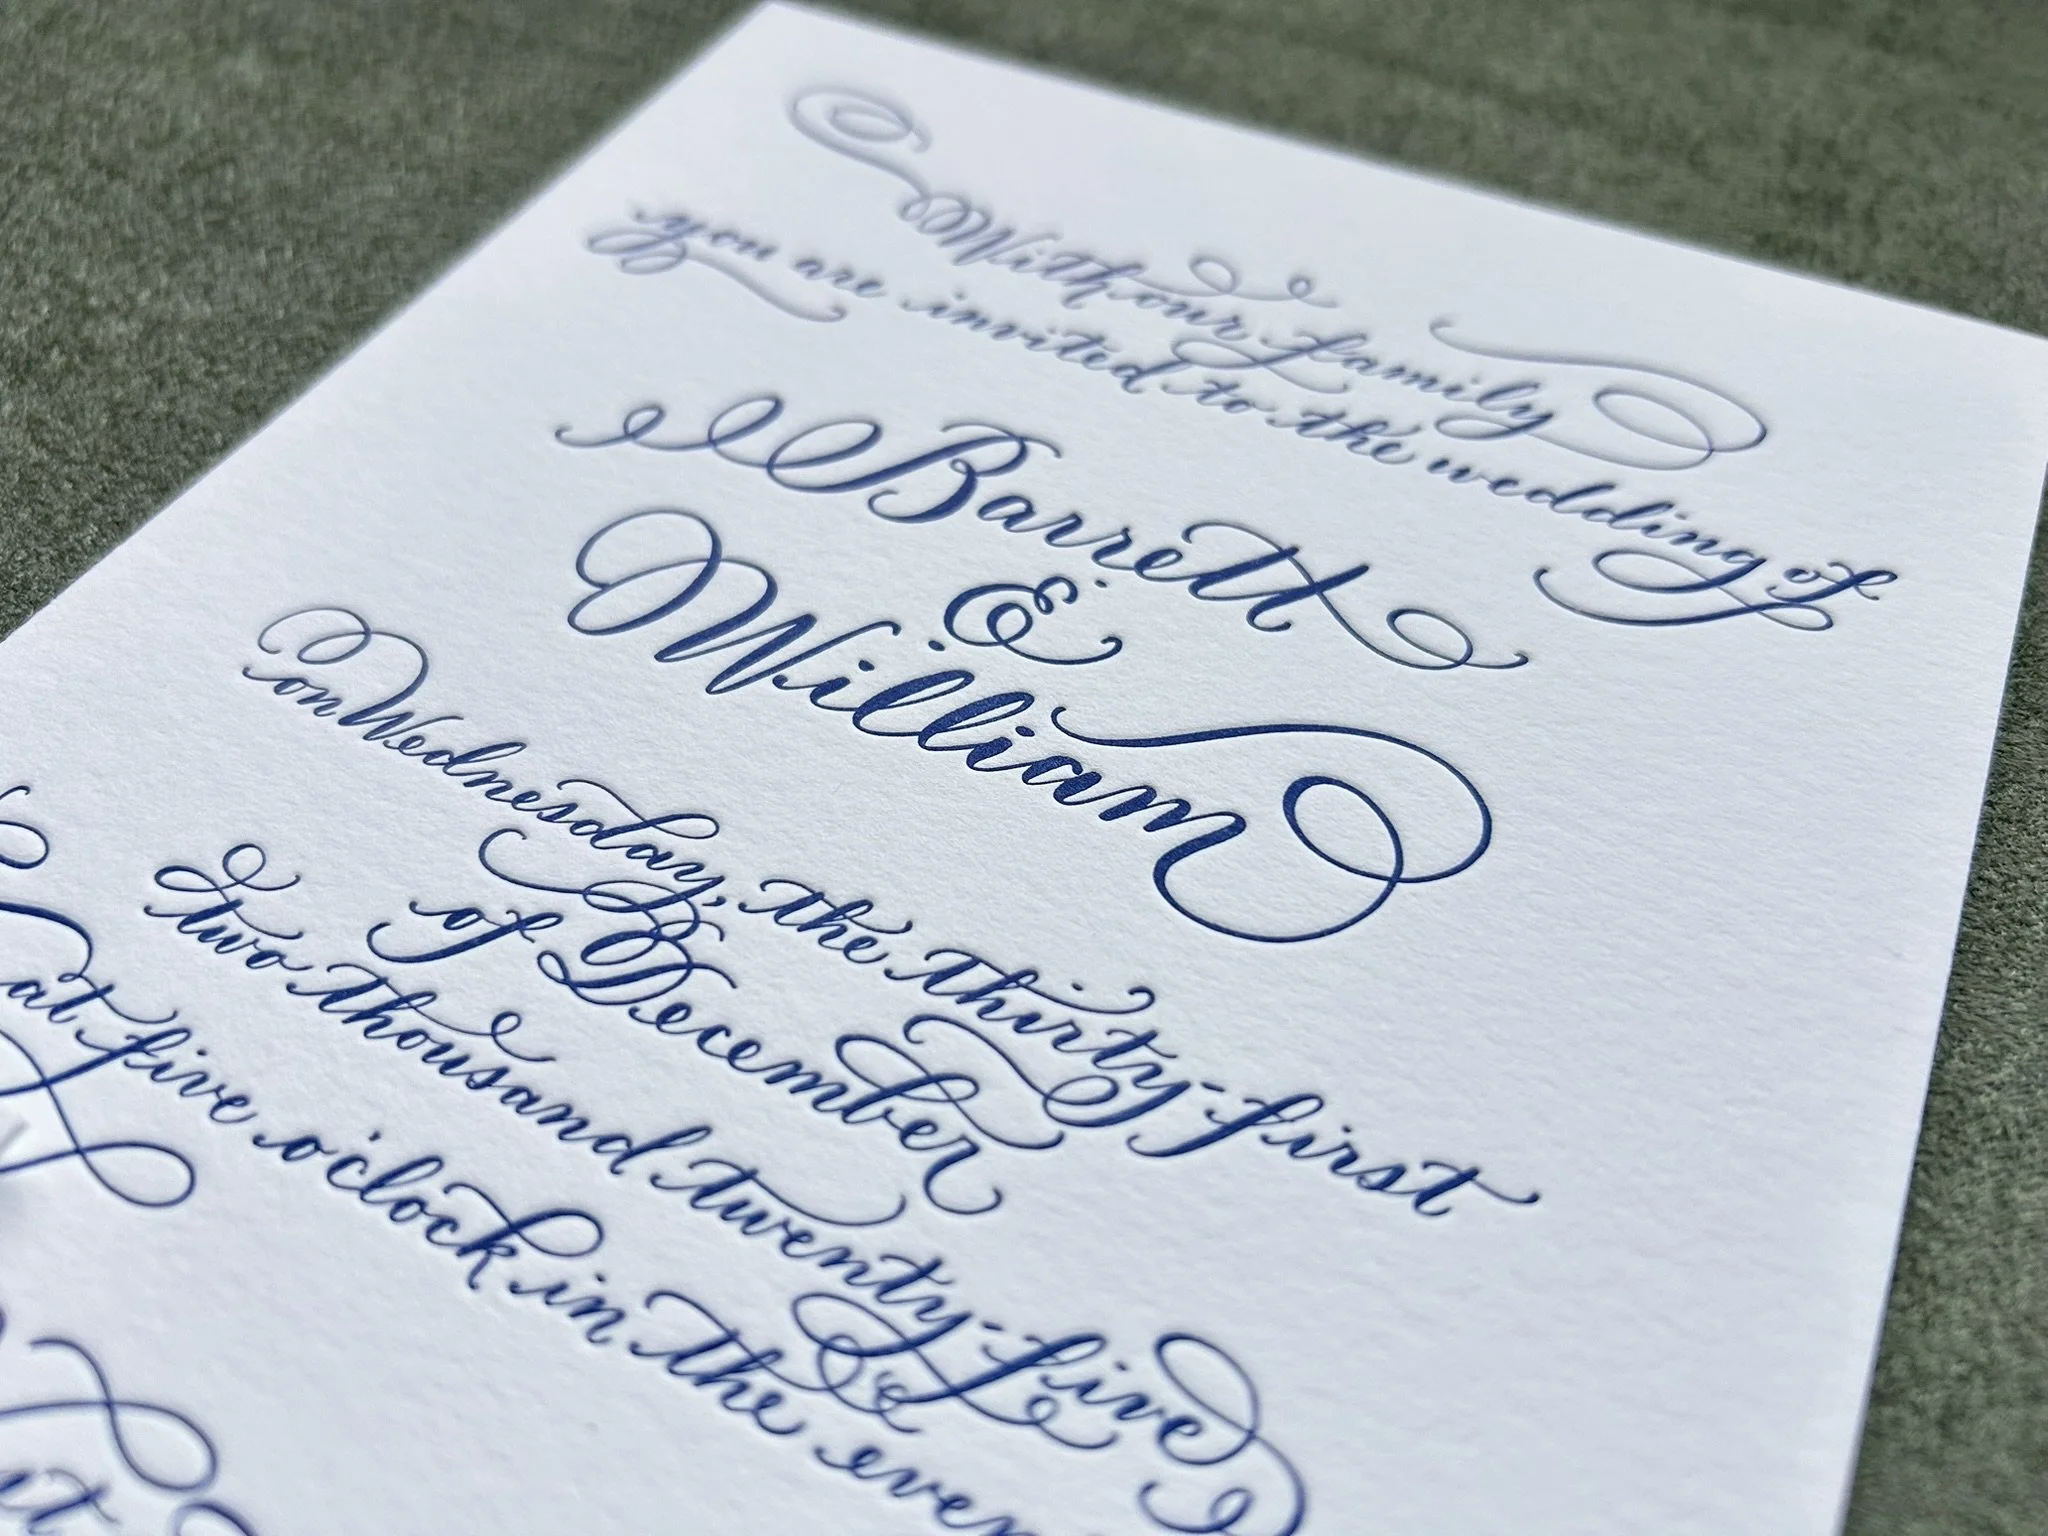 With our family
you are invited to the wedding of
Barrett
&
William
on Wednesday, the thirty-first
of December
two thousand twenty-five
at five o'clock in the